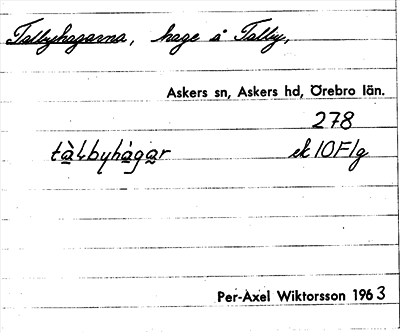 Tallbyhagarna, hage å Tallby,
Askers sn, Askers hd, Örebro län.
278
tàḷbyhàgar ek 10F1g
Per-Axel Wiktorsson 1963